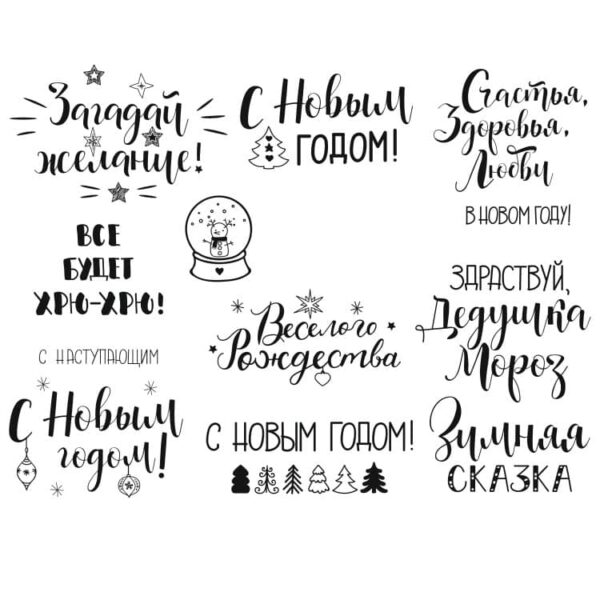 Загадай
желание!
С Новым
ГОДОМ!
Счастья,
Здоровья,
Любви
В НОВОМ ГОДУ!
ВСЕ
БУДЕТ
ХРЮ-ХРЮ!
ЗДРАСТВУЙ,
Дедушка
Мороз
Веселого
Рождества
С НАСТУПАЮЩИМ
С Новым
годом!
С НОВЫМ ГОДОМ!
Зимняя
СКАЗКА